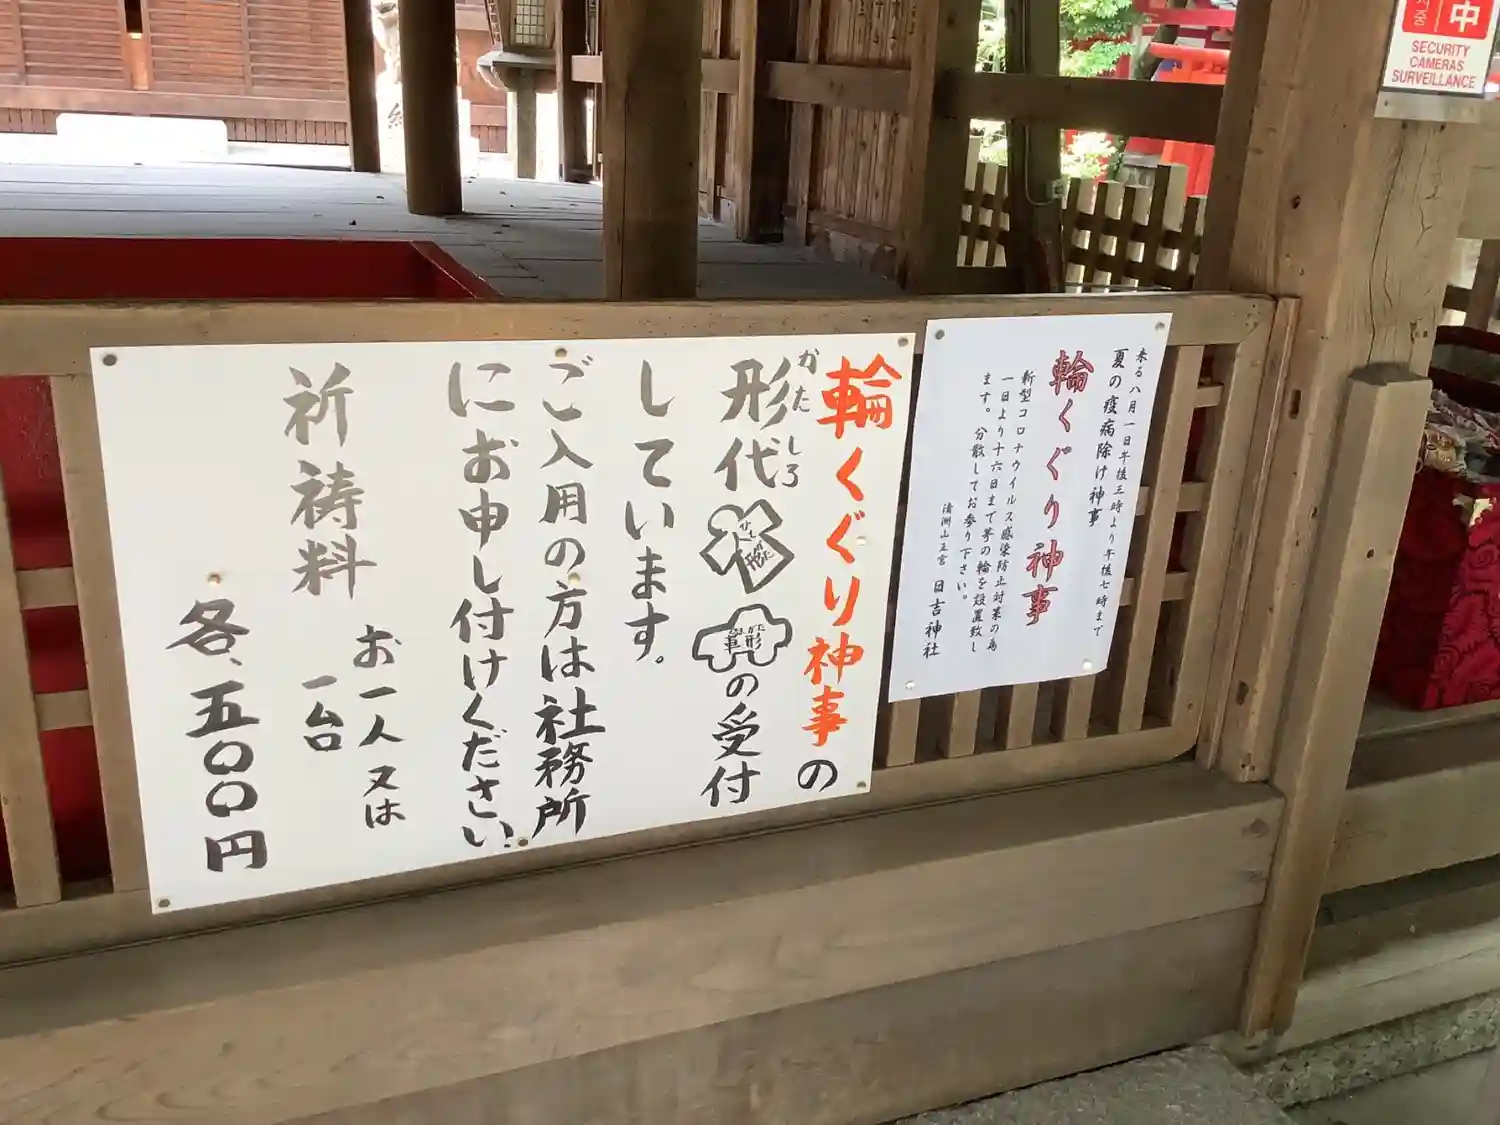 輪くぐり神事の
形代
かたしろ
ひとがた
車形
の受付
しています。
ご入用の方は社務所
にお申し付けください
祈祷料
お一人又は
一台
各、五〇〇円
来る八月一日午後三時より午後七時まで
夏の疫病除け神事
輪くぐり神事
新型コロナウイルス感染防止対策の為
一日より十六日まで茅の輪を設置致し
ます。分散してお参り下さい。
清洲山王宮 日吉神社
中
SECURITY
CAMERAS
SURVEILLANCE